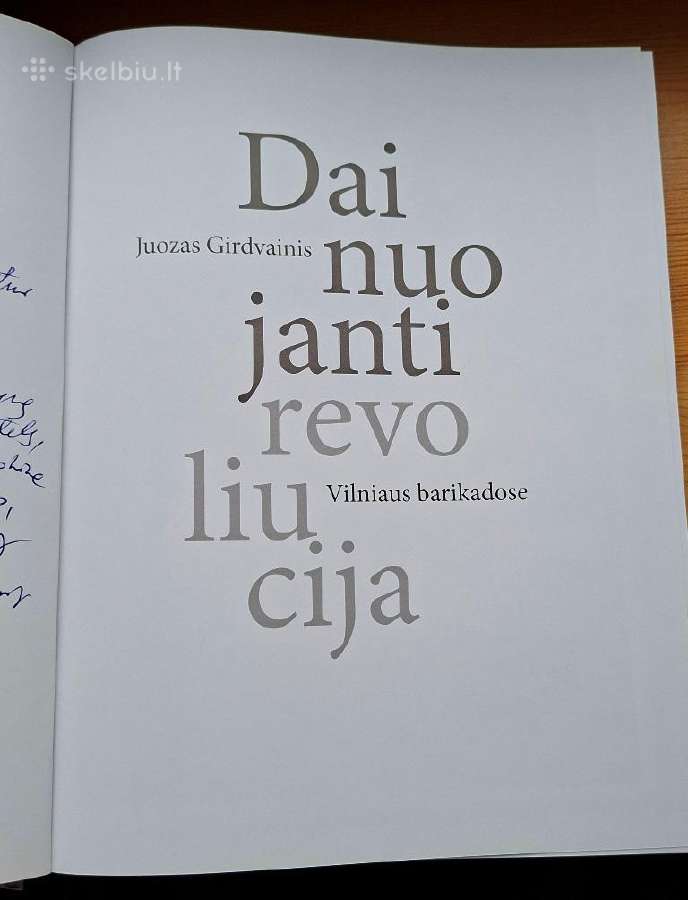 skelbiu.lt
Dai
Juozas Girdvainis
nuo
janti
revo
liu
Vilniaus barikadose
cija